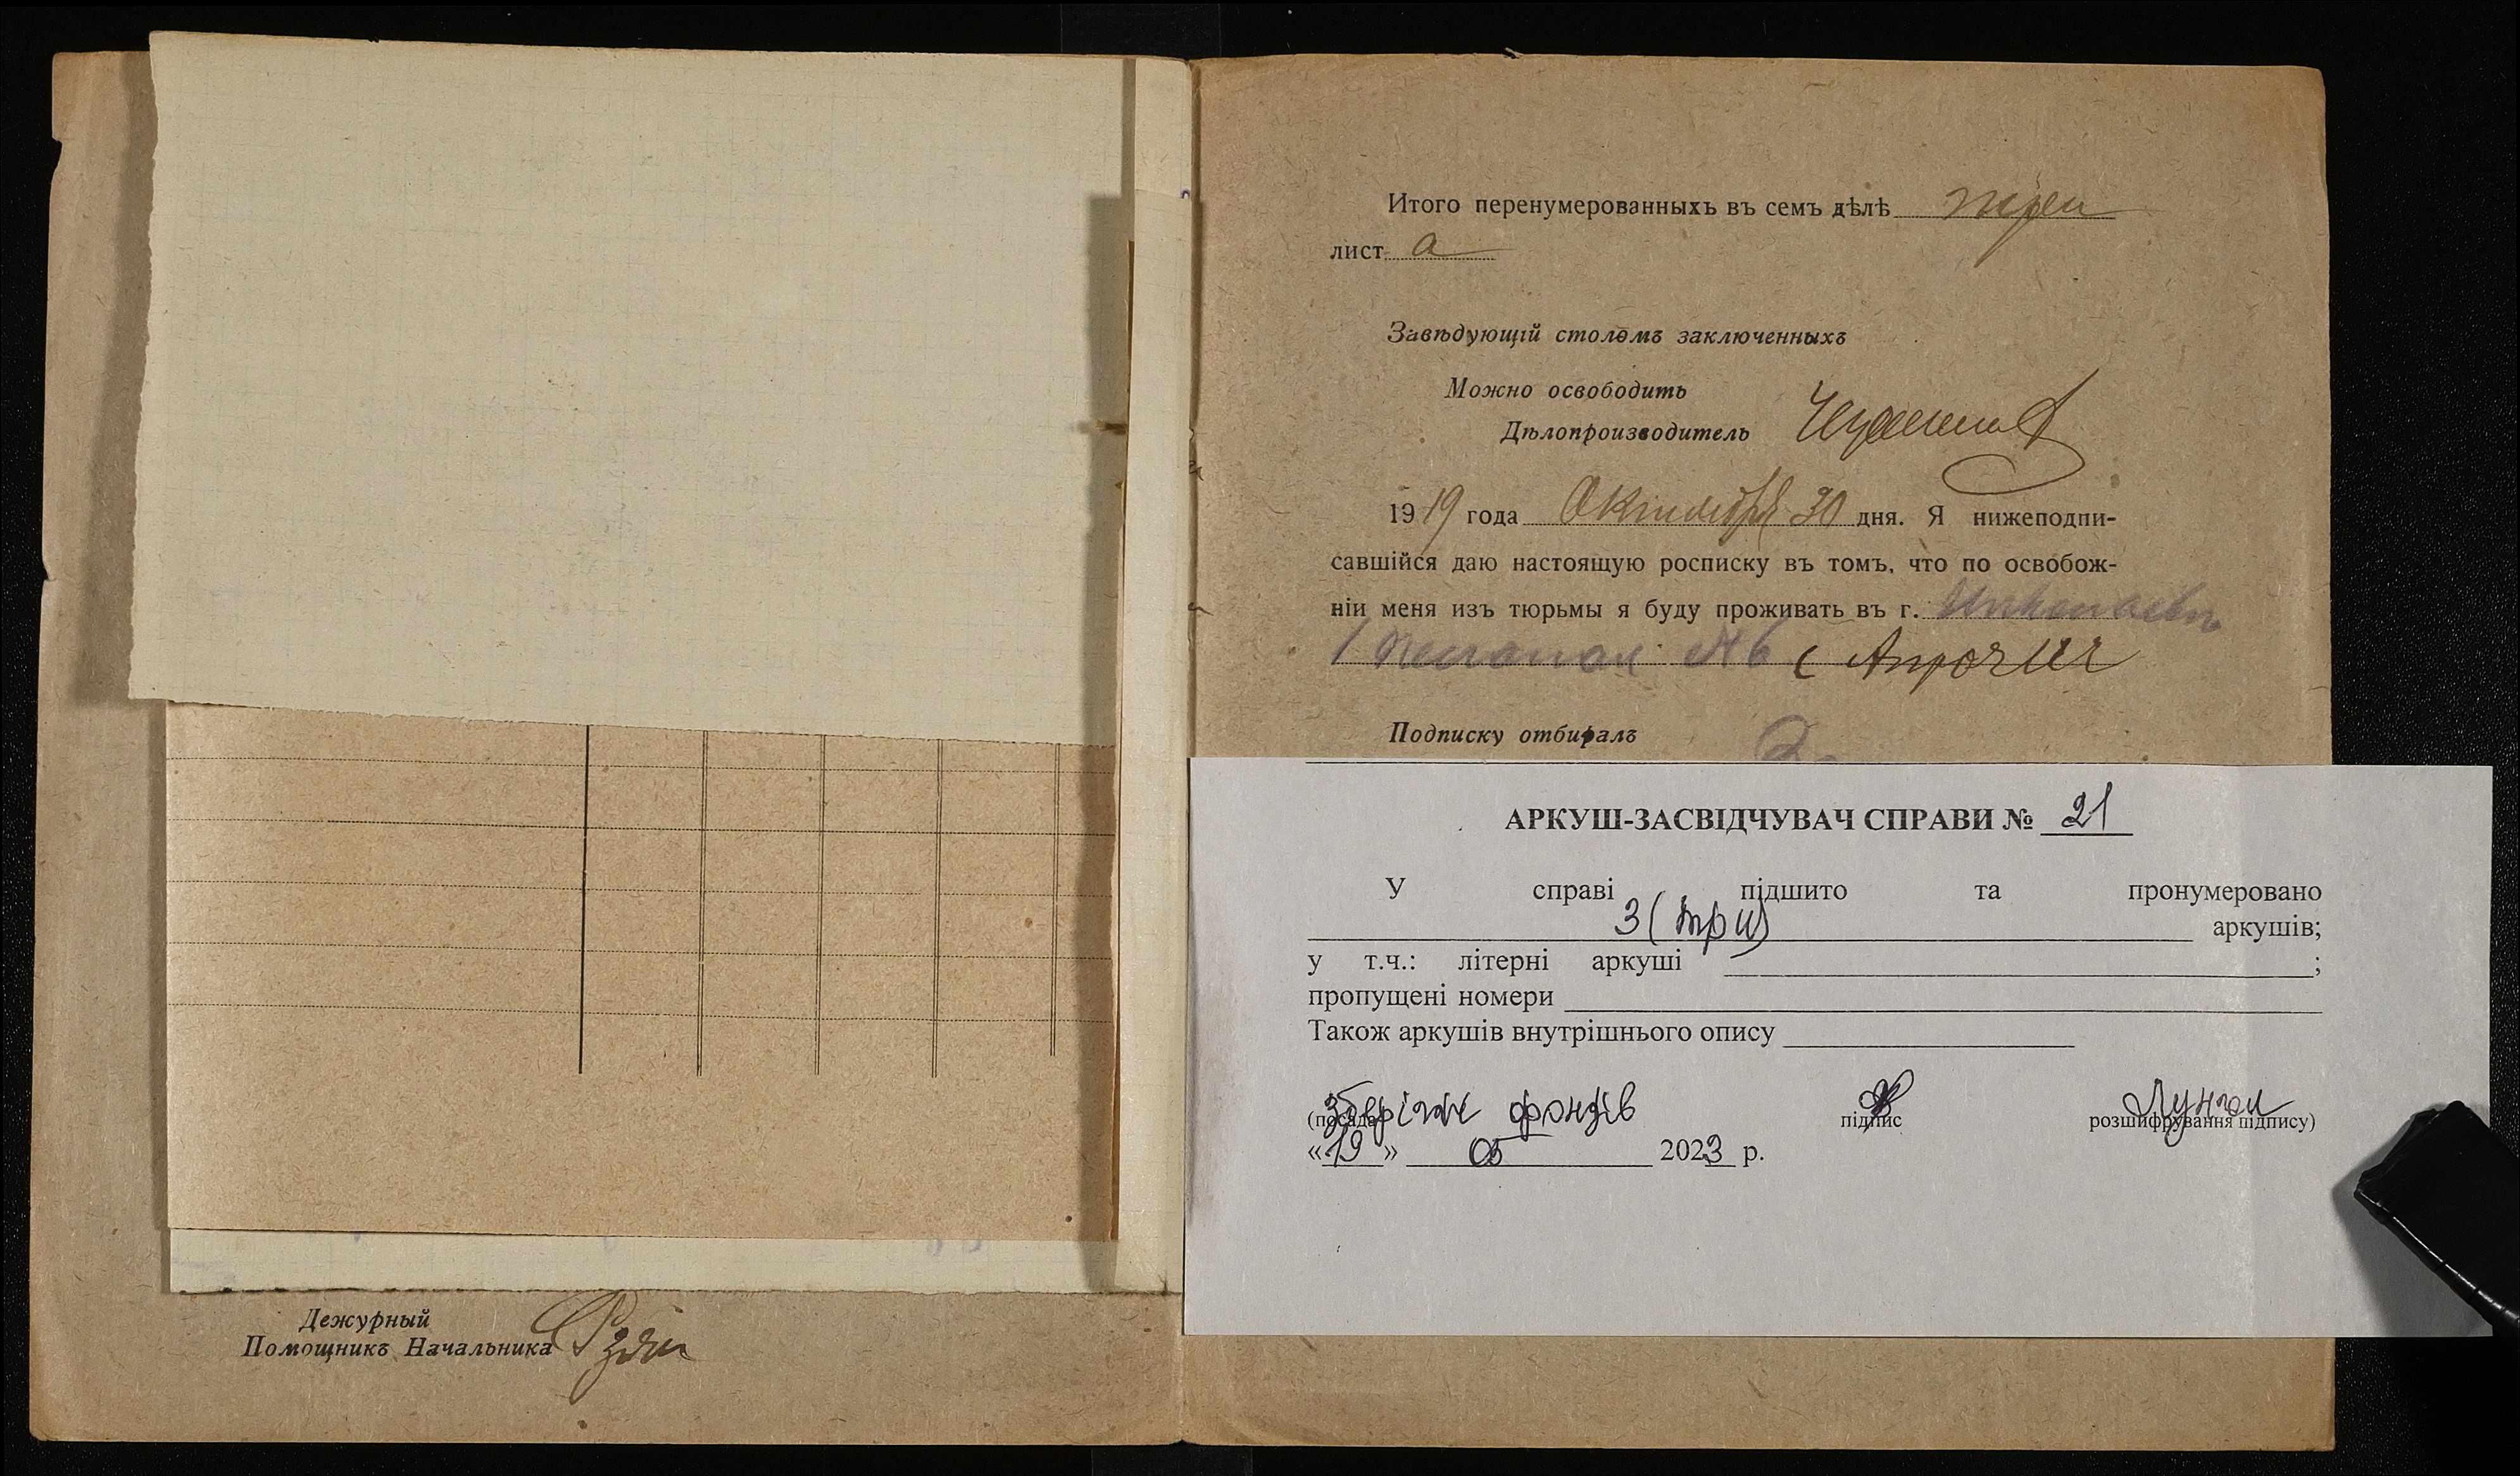 Дежурный
Помощникъ Начальника
Итого перенумерованныхъ въ семъ дѣлѣ три
лист а
Завѣдующій столомъ заключенныхъ
Можно освободить
Дѣлопроизводитель
1919 года Октября 30 дня. Я нижеподпи-
савшійся даю настоящую росписку въ томъ, что по освобож-
ніи меня изъ тюрьмы я буду проживать въ г. Николаевъ
Подписку отбиралъ
АРКУШ-ЗАСВІДЧУВАЧ СПРАВИ № 21
У справі підшито та пронумеровано
3 (три) аркушів;
у т.ч.: літерні аркуші ;
пропущені номери
Також аркушів внутрішнього опису
зберігач фондів
(посада підпис розшифрування підпису)
«19» 05 2023 р.